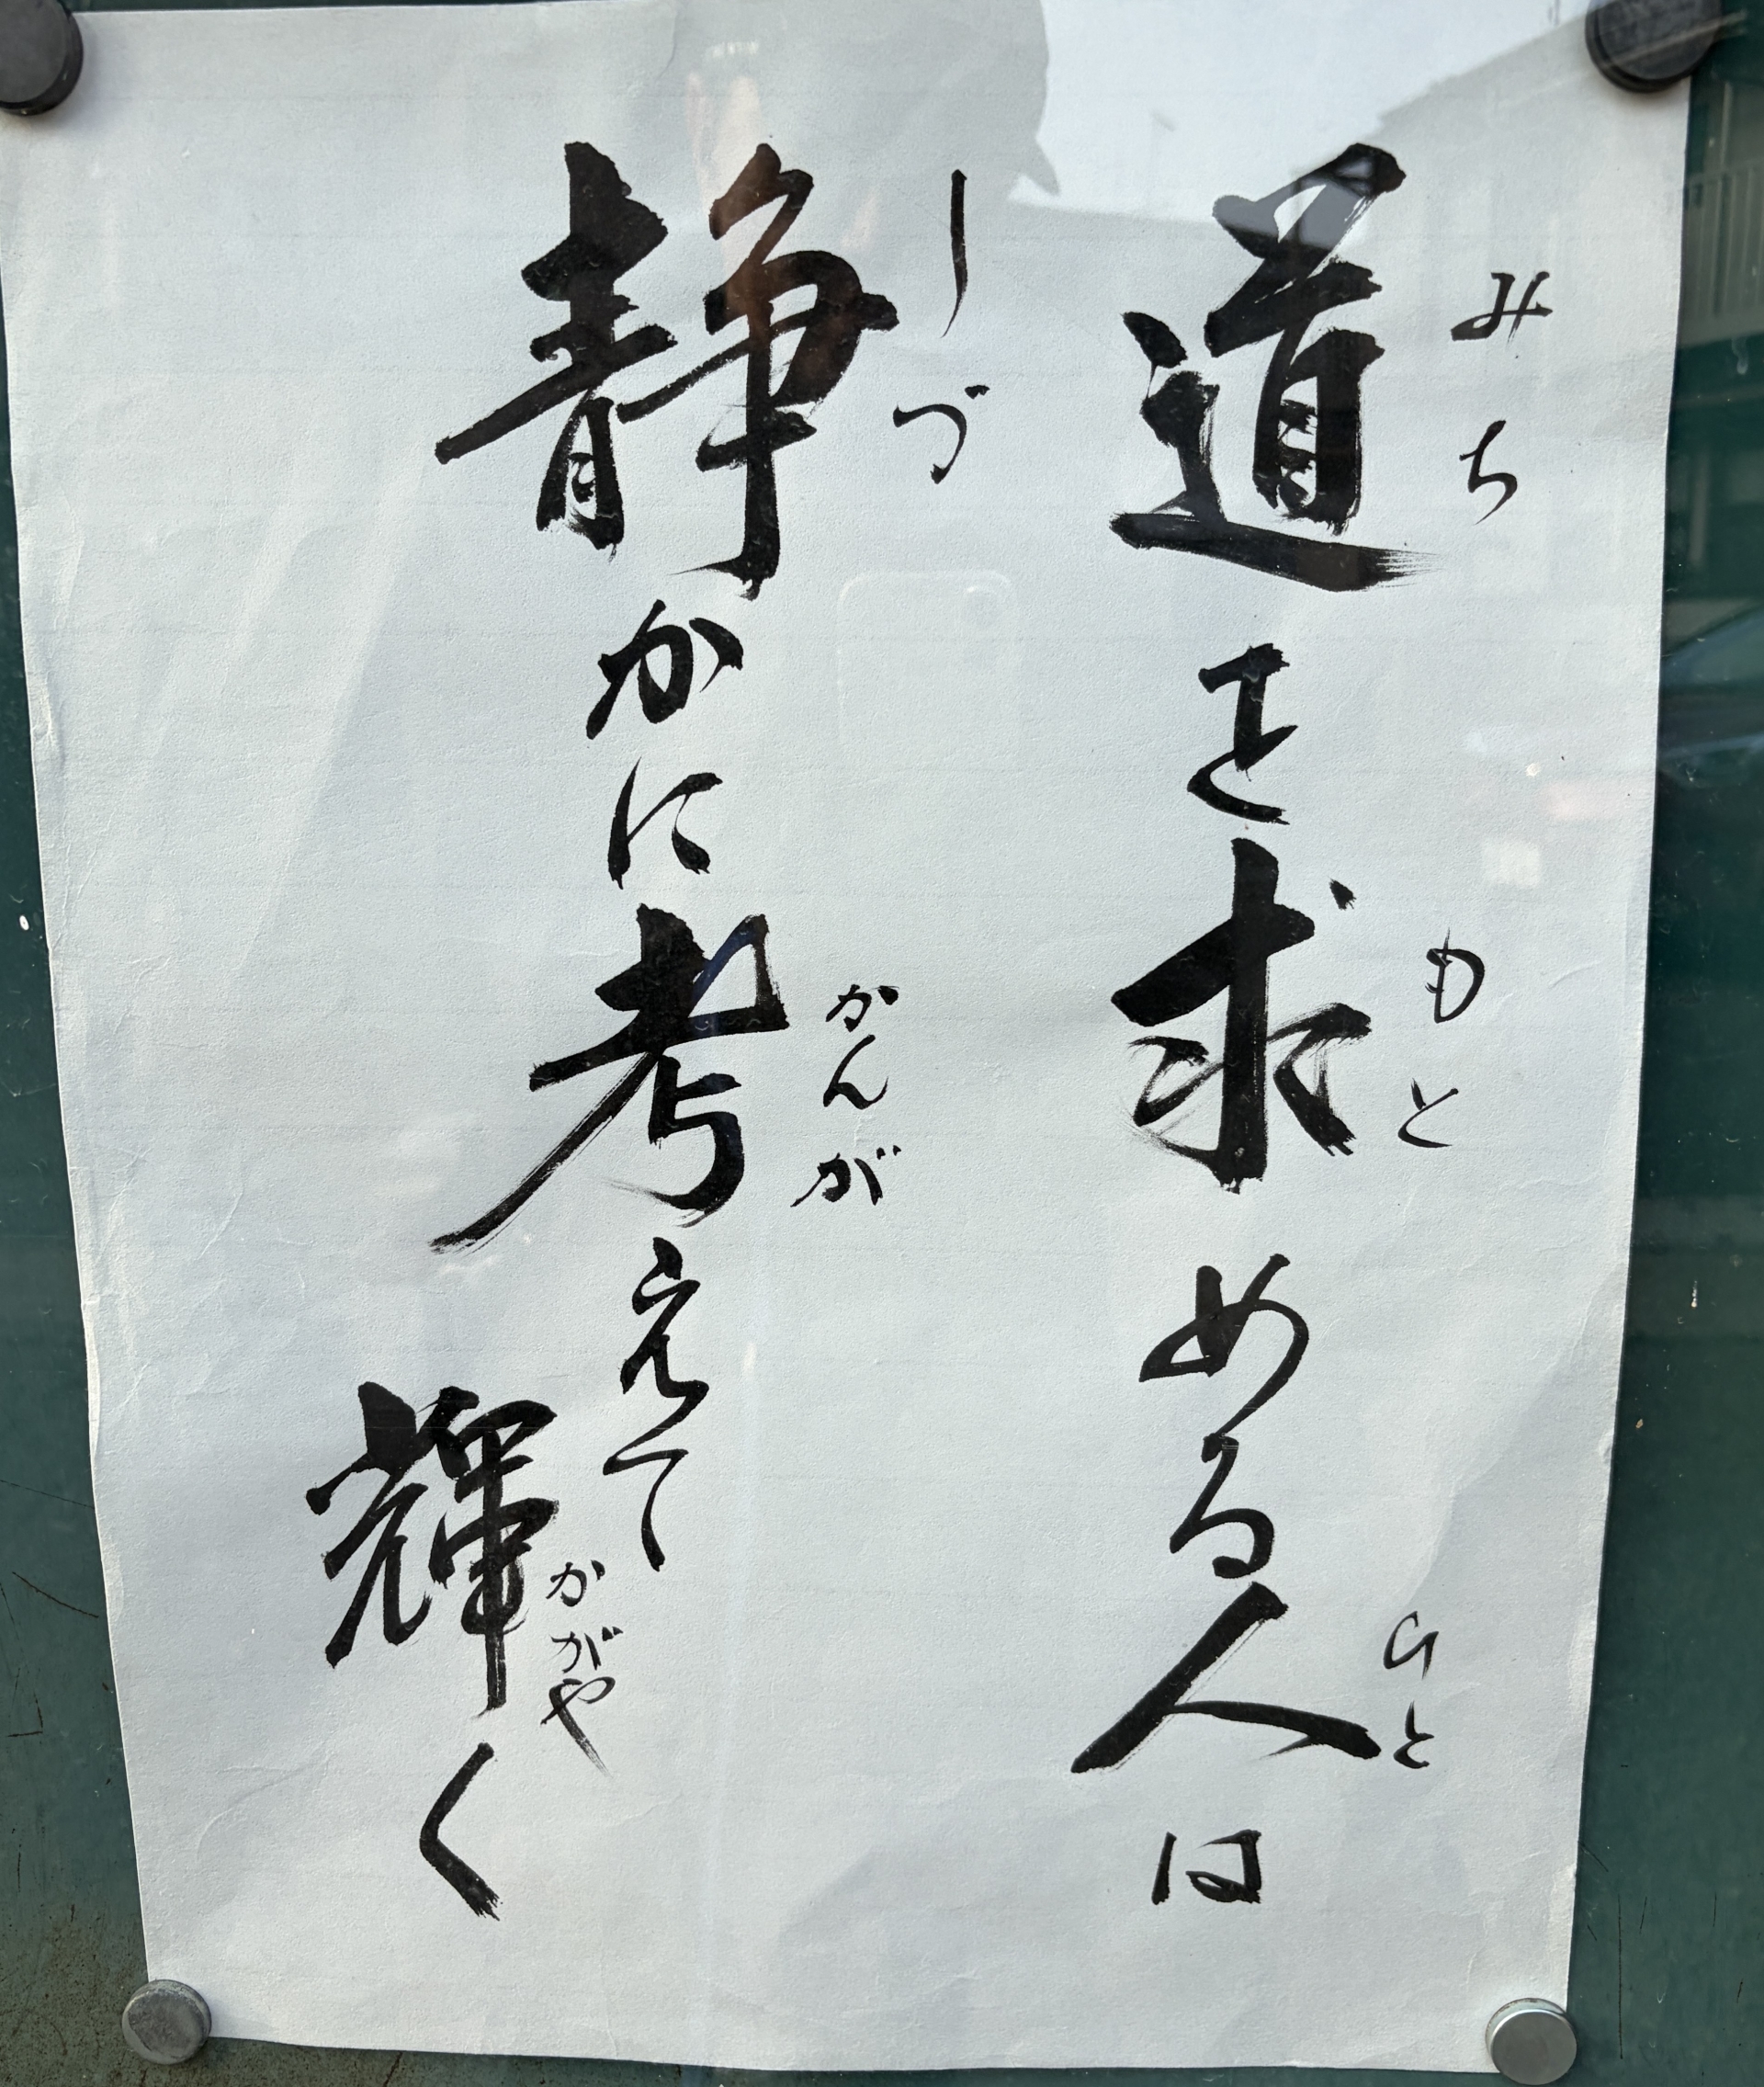 道を求める人は
みち
もと
ひと
静かに考えて
しづ
かんが
輝く
かがや